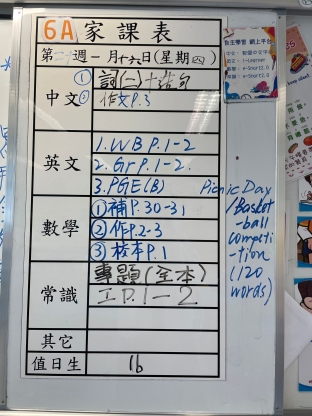 6A 家課表
第二十週一月十六日(星期四)
中文
① 詞(二)十造句
② 作文P.3
英文
1.WB P.1-2
2.Gr P.1-2.
3.PGE(B) Picnic Day
/Basket
-ball
competi
-tion
(120
words)
數學
①補P.30-31
②作P.2-3
③校本P.1
常識
專題(全本)
工P.1-2
其它
值日生 16
自主學習 網上平台